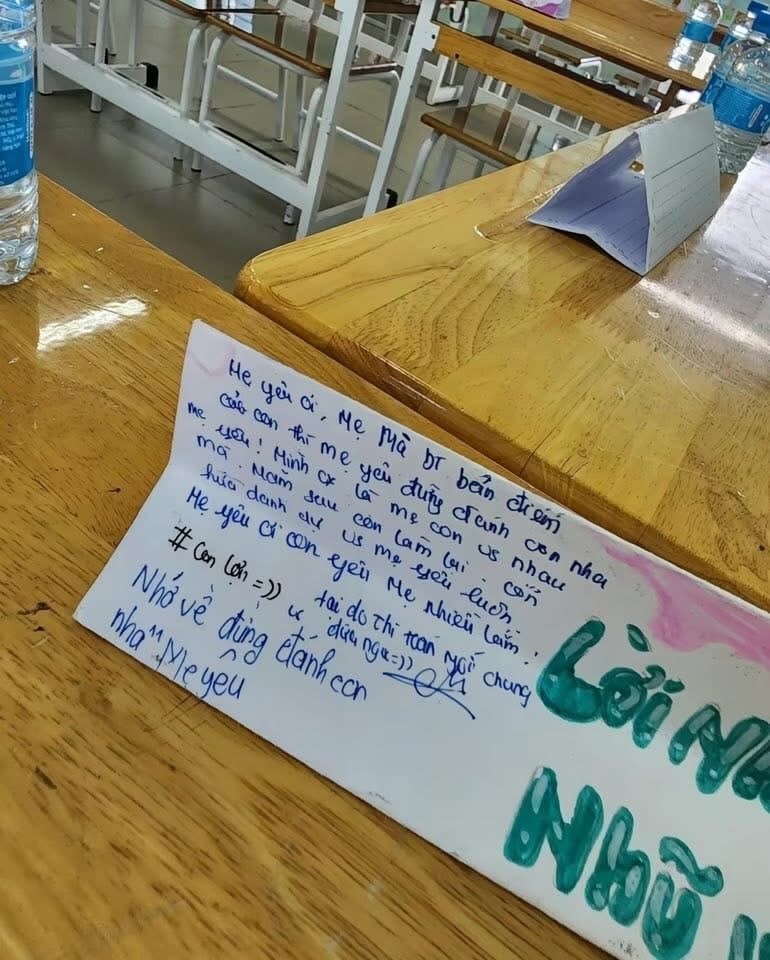 Mẹ yêu ơi, Mẹ Mà bt bản điểm
của con thì mẹ yêu đừng đánh con nha
mẹ yêu! Mình cx là mẹ con vs nhau
mà. Năm sau con làm lại. Con
hứa danh dự vs mẹ yêu luôn
Mẹ yêu ơi con yêu Mẹ nhiều lắm!
#Con lớn =))
tại do thi toàn ngồi chung
vs đứa ngu =))
Nhớ về đừng đánh con
nha "Mẹ yêu
Lời Nh
Nhữ